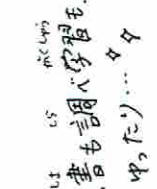 書も調べ学習も、
ゆったり…☆☆